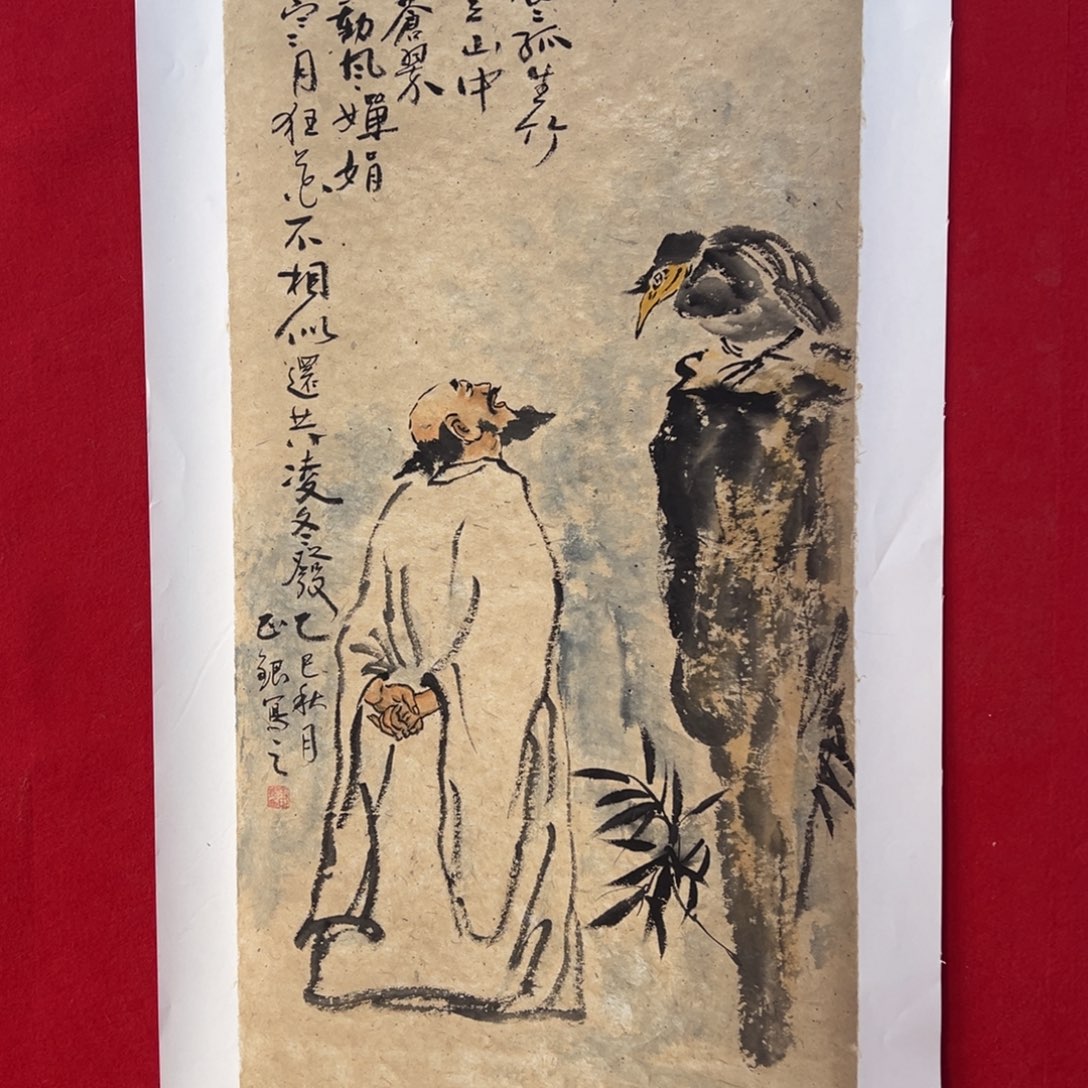 孤生竹
山中
蒼翠
動風嬋娟
寒月狂花不相似還共凌冬發
乙巳秋月
正銀寫之